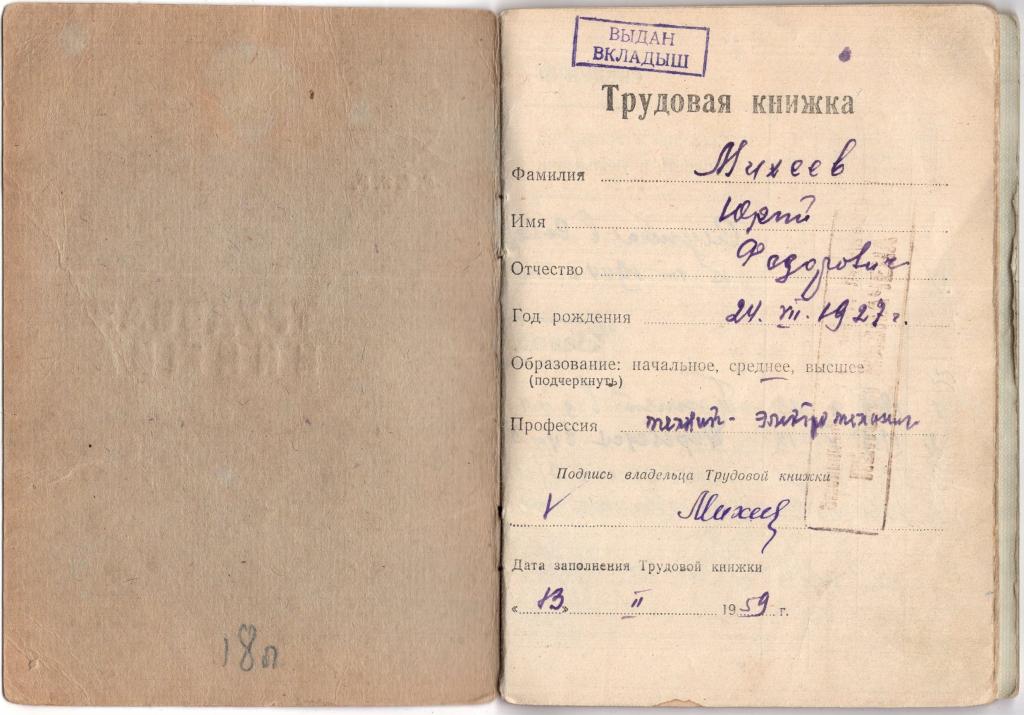 ВЫДАН
ВКЛАДЫШ
Трудовая книжка
Фамилия Михеев
Имя Юрий
Отчество Федорович
Год рождения 24. VII. 1927 г.
Образование: начальное, среднее, высшее
(подчеркнуть)
Профессия техник-электромеханик
Подпись владельца Трудовой книжки
V Михеев
Дата заполнения Трудовой книжки
«13» II 1959 г.
18л